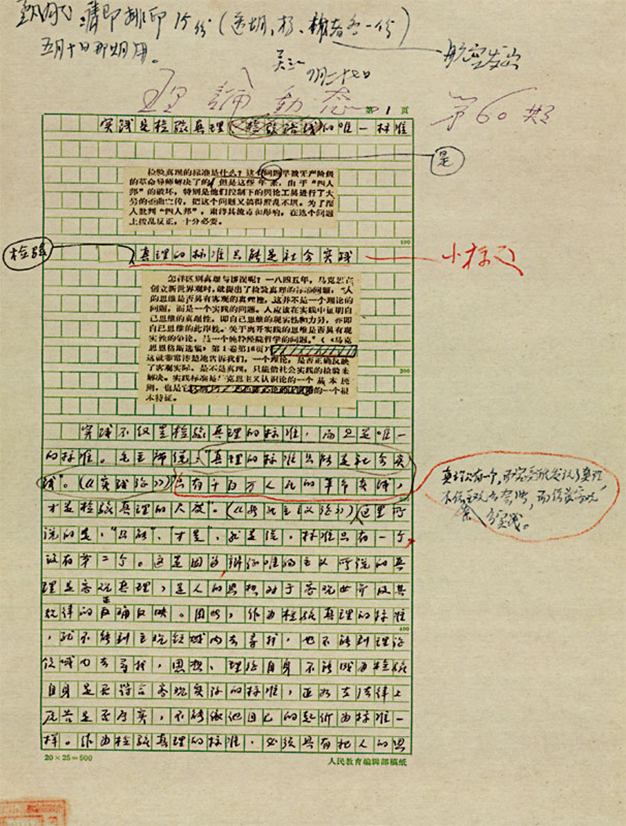 请即排印15份（送胡、杨、
五月十日前用。
吴江
航空发出
理论动态
第60期
第1页
实践是检验真理的唯一标准
是
检验真理的标准是什么？这个问题早被无产阶级
的革命导师解决了的。但是这些年来，由于“四人
邦”的破坏，特别是他们控制下的舆论工具进行了大
量的歪曲宣传，把这个问题又搞得混乱不堪。为了深
入批判“四人邦”，肃清其流毒和影响，在这个问题
上拨乱反正，十分必要。
100
检验
真理的标准只能是社会实践
小标题
怎样区别真理与谬误呢？一八四五年，马克思在
创立新世界观时，就提出了检验真理的标准问题：“人
的思维是否具有客观的真理性，这并不是一个理论的
问题，而是一个实践的问题。人应该在实践中证明自
己思维的真理性，即自己思维的现实性和力量，亦即
自己思维的此岸性。关于离开实践的思维是否具有现
实性的争论，是一个纯粹经院哲学的问题。”（《马克
思恩格斯选集》第1卷第16页）
这就非常清楚地告诉我们，一个理论，是否正确反映
了客观实际，是不是真理，只能由社会实践的检验来
解决。实践标准是马克思主义认识论的一个基本原
则，也是
的一个根
本特征。
200
实践不仅是检验真理的标准，而且是唯一
的标准。毛主席说：“真理的标准只能是社会的实
践”。（《实践论》）“只有千百万人民的革命实践，
才是检验真理的尺度。”（《新民主主义论》）这里所
说的是，“只能”、“才是”，就是说，标准只有一个，
没有第二个。这是因为辩证唯物主义所说的真
理是客观真理，是人的思想对于客观世界及其
规律的正确反映。因此，作为检验真理的标准
，就不能到主观领域内去寻找，也不能到理论
领域内去寻找，思想、理论自身不能成为检验
自身是否符合客观实际的标准，正如在法律上
是否属实，不能依他自己的起诉为标准一
样。作为检验真理的标准，必须具有把人的思
400
真理只有一个，而究竟谁发现了真理
不依主观的夸张，而依客观
的实践。
20×25＝500
人民教育编辑部稿纸